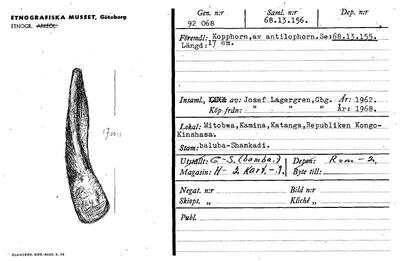 ETNOGRAFISKA MUSEET, Göteborg
ETNOGR. ARKEOL.
17 cm
ELANDERS, GBG.
Gen. n:r
92 068
Saml. n:r
68.13.156.
Dep. n:r
Föremål: Kopphorn,av antilophorn.Se:68.13.155.
Längd:17 cm.
Insaml., av: Josef Lagergren,Gbg. År: 1962.
Köp från: " " " År: 1968.
Lokal: Mitobwa,Kamina,Katanga,Republiken Kongo-
Kinshasa.
Stam: baluba-Shankadi.
Utställt: G-S. (bamba.)
Depon: Rum - 2,
Magasin: H- 2 Kart.-1.
Byte till:
Negat. n:r
Bild n:r
Skiopt. "
Kliché "
Publ.